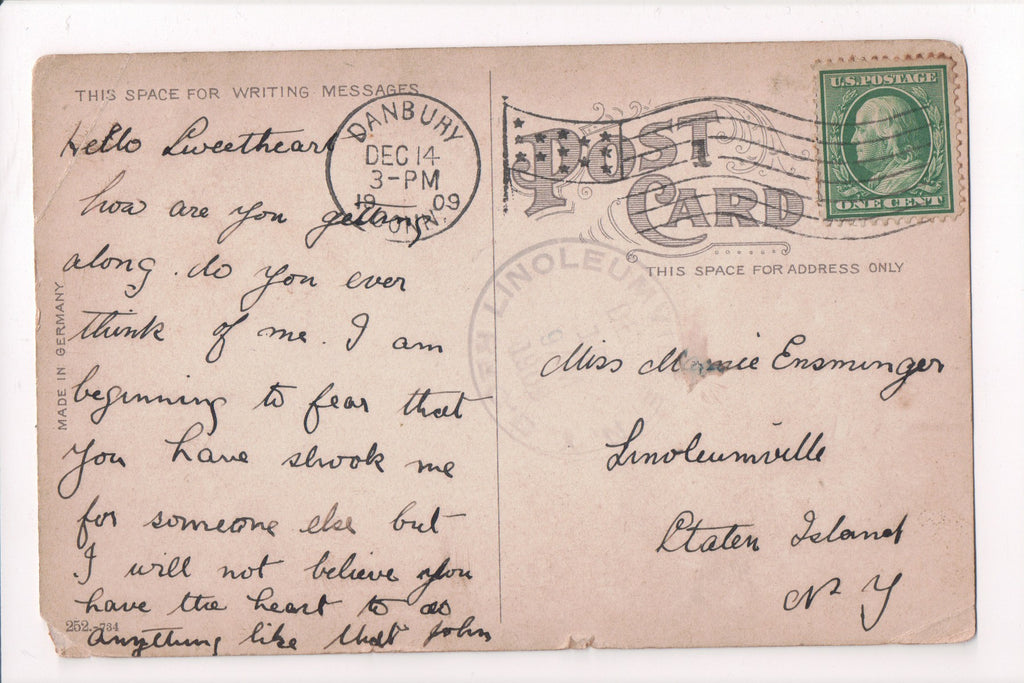 THIS SPACE FOR WRITING MESSAGES
Hello Sweetheart
how are you getting
along. do you ever
think of me. I am
beginning to fear that
you have shook me
for someone else but
I will not believe you
have the heart to do
anything like that John
MADE IN GERMANY
252.-734
DANBURY
DEC 14
3-PM
1909
CONN.
POST
CARD
U.S. POSTAGE
ONE CENT
THIS SPACE FOR ADDRESS ONLY
LINOLEUMV
Miss Mamie Ensminger
Linoleumville
Staten Island
N Y